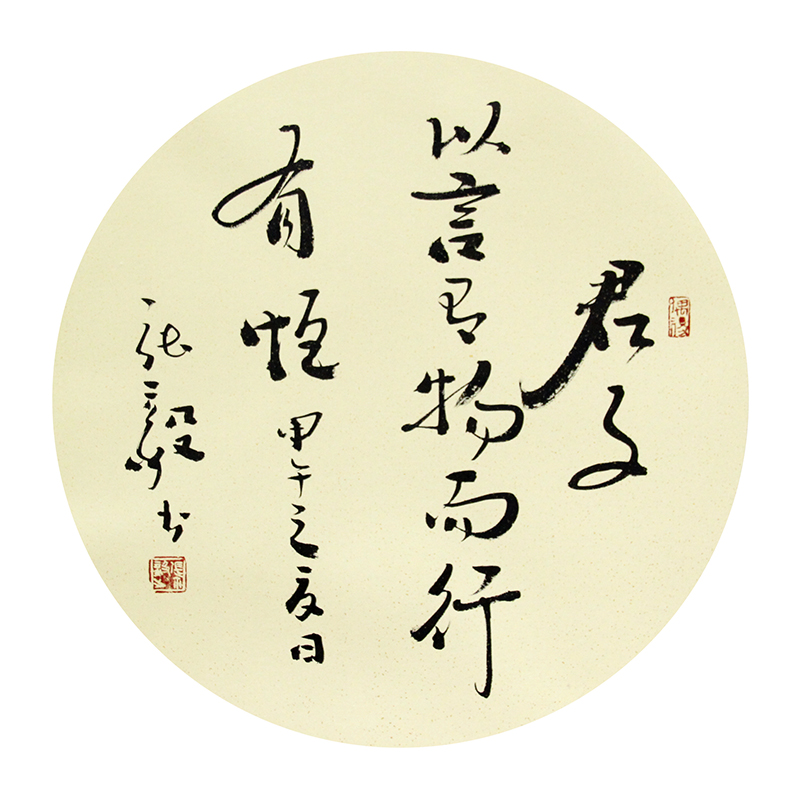 君子
以言有物而行
有恒 甲午之夏日
张毅书